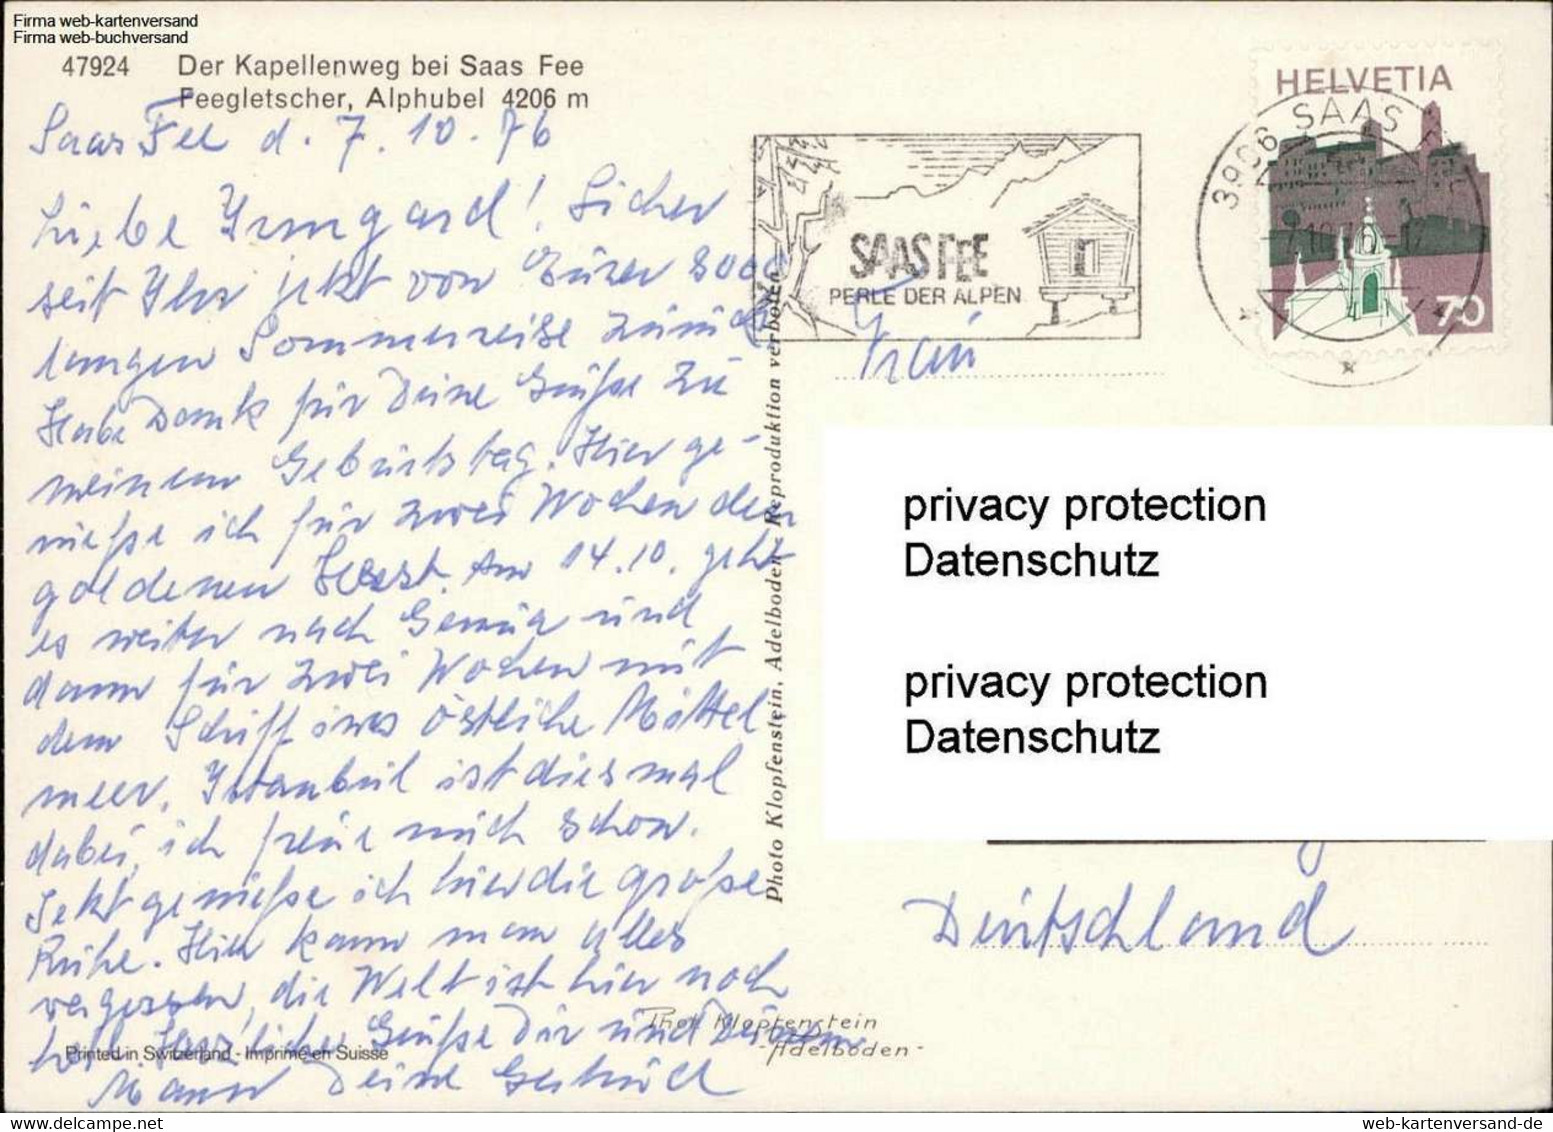 Firma web-kartenversand
Firma web-buchversand
47924 Der Kapellenweg bei Saas Fee
Feegletscher, Alphubel 4206 m
Saas Fee d. 7. 10. 76
Liebe Irmgard! Sicher
seit Ihr jetzt von Eurer
langen Sommerreise zurück
Habe Dank für Deine Grüße zu
meinem Geburtstag. Hier ge-
nieße ich für zwei Wochen den
goldenen Herbst. Am 14.10. geht
es weiter nach Genua und
dann für zwei Wochen mit
dem Schiff ins östliche Mittel
meer. Istanbul ist diesmal
dabei, ich freue mich schon.
Jetzt genieße ich hier die große
Ruhe. Hier kann man alles
vergessen, die Welt ist hier noch
heil. Herzliche Grüße Dir und Deinem
Mann Deine Gertrud
Printed in Switzerland - Imprimé en Suisse
Photo Klopfenstein, Adelboden - Reproduktion verboten
SAAS FEE
PERLE DER ALPEN
HELVETIA
70
3906 SAAS
Frau
privacy protection
Datenschutz
privacy protection
Datenschutz
Deutschland
Phot. Klopfenstein
- Adelboden -
web-kartenversand-de